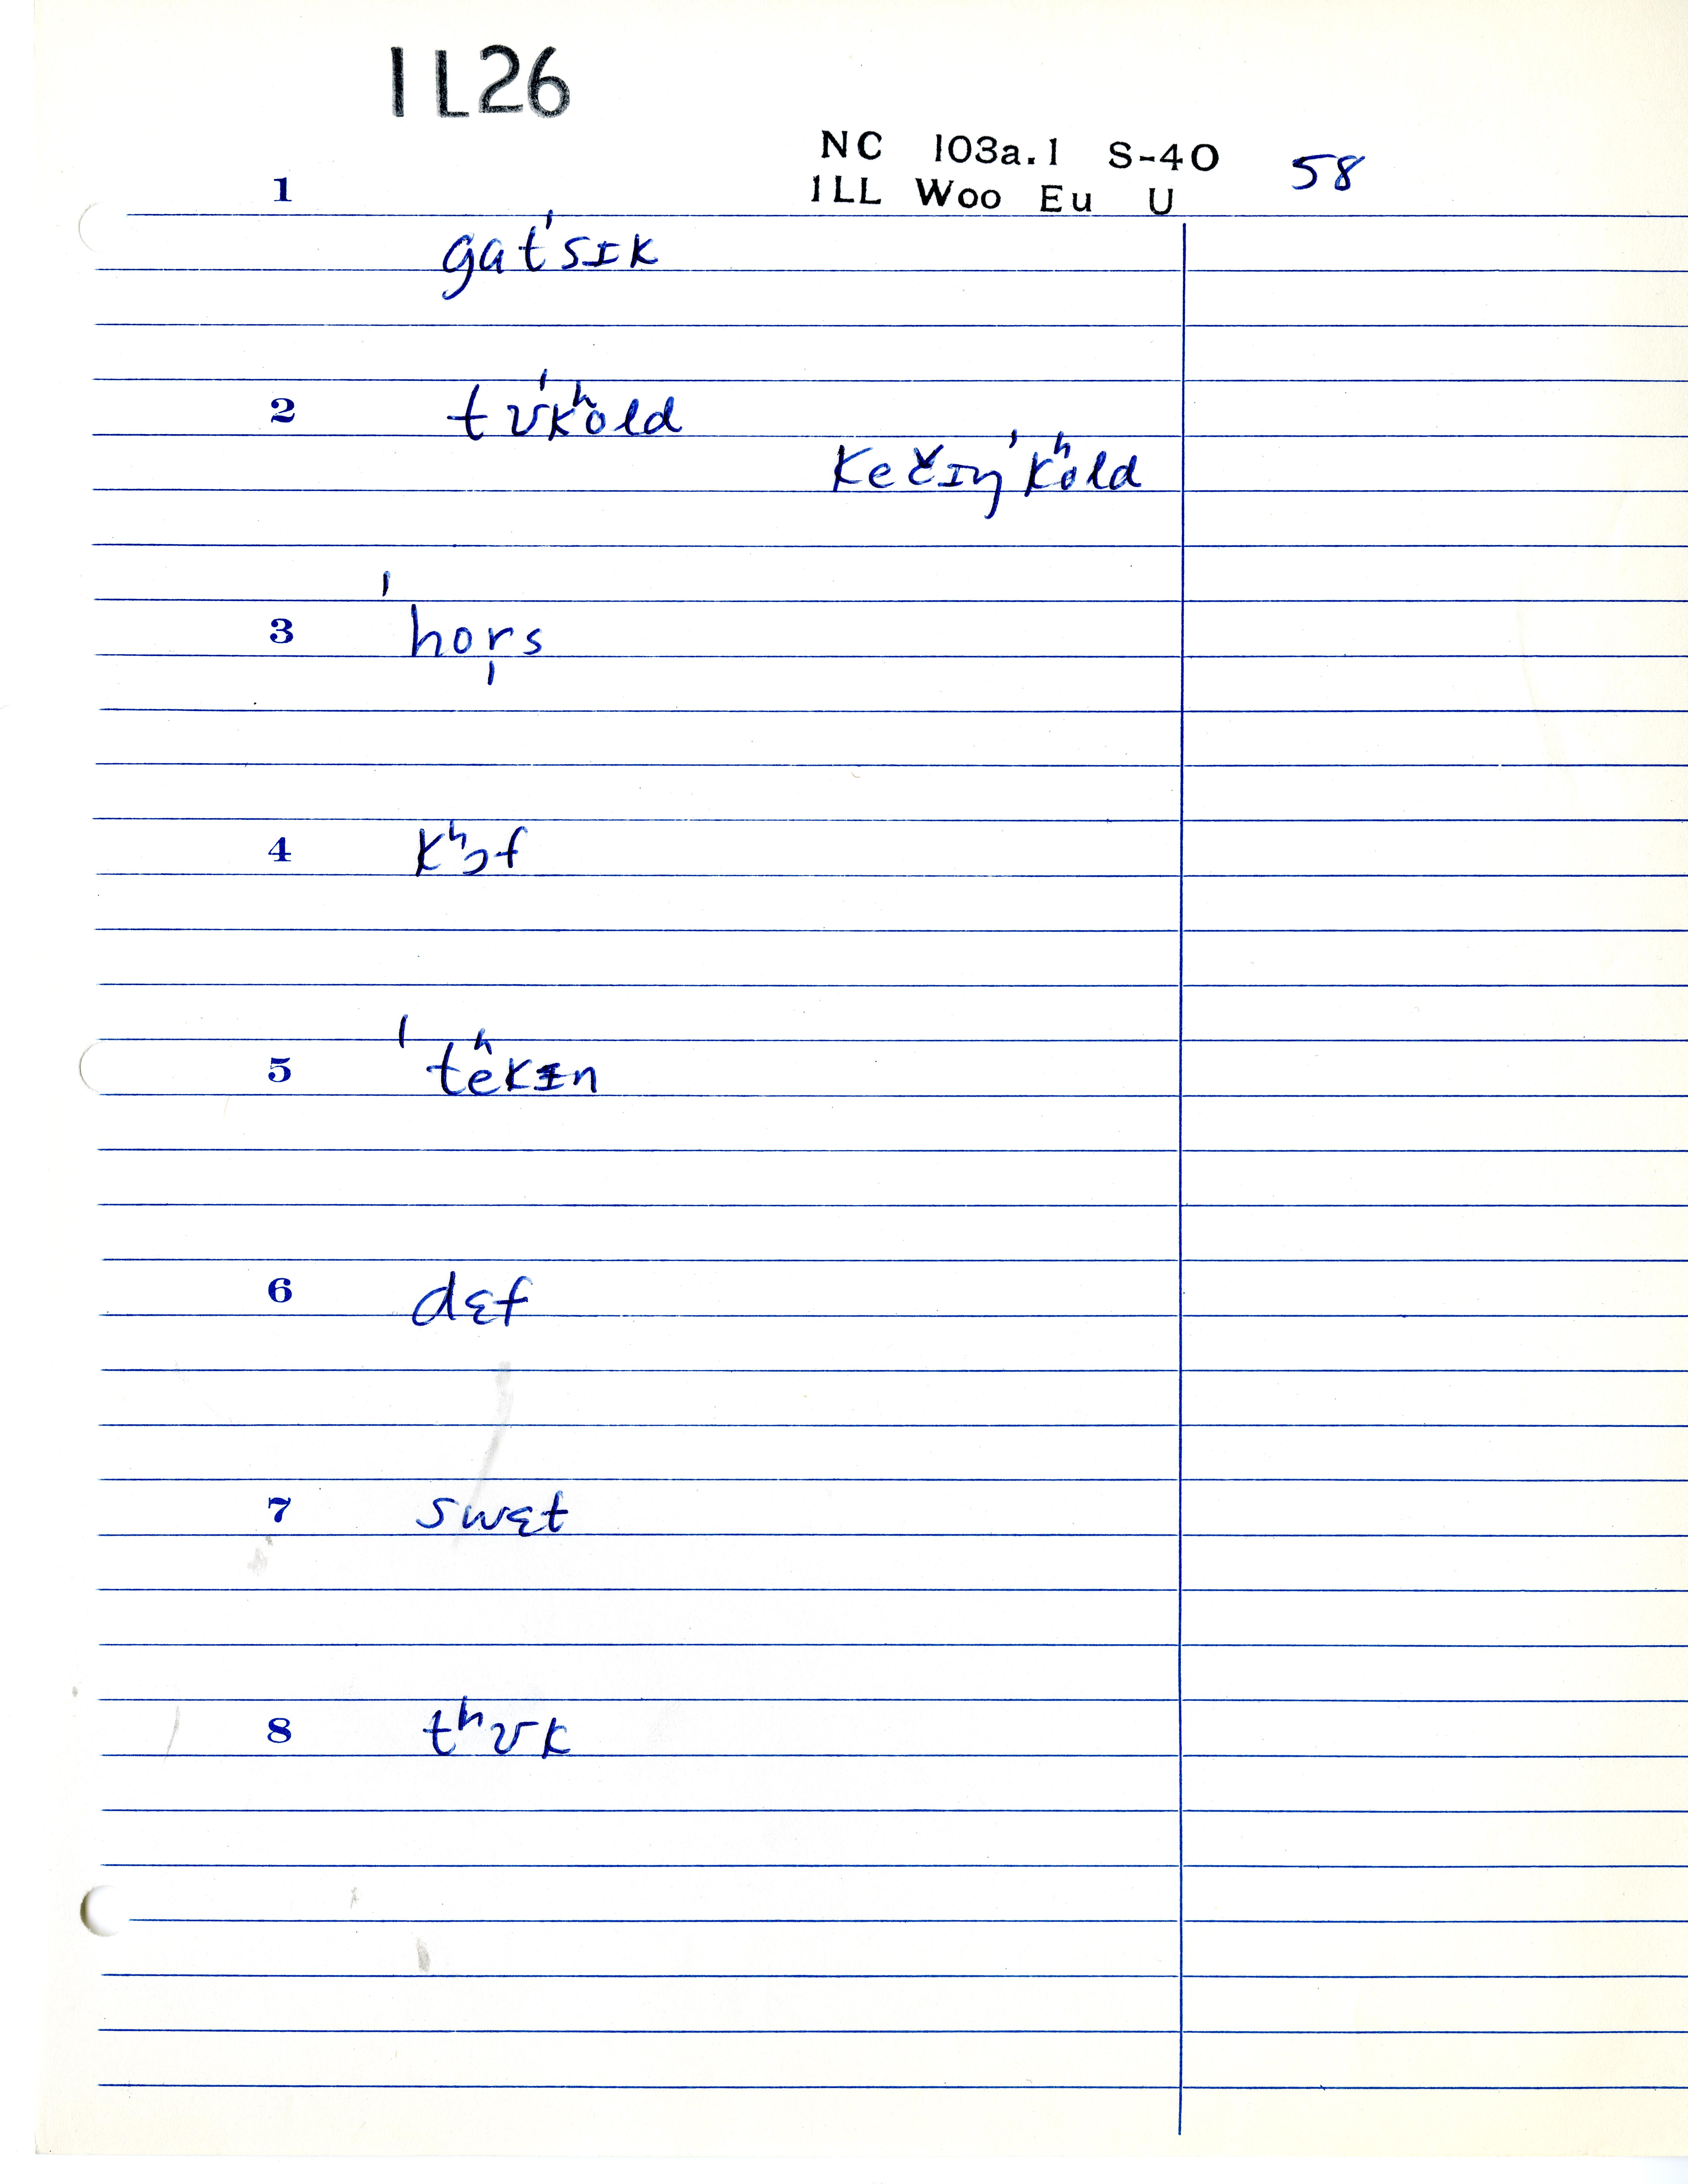 1L26
NC 103a.1 S-40 58
ILL Woo Eu U
1 gatˈsɪk
2 tʊˈkʰold
kečɪŋˈkʰold
3 ˈhor̩s
4 kʰɔf
5 ˈtʰekɪn
6 dɛf
7 swɛt
8 tʰʊk